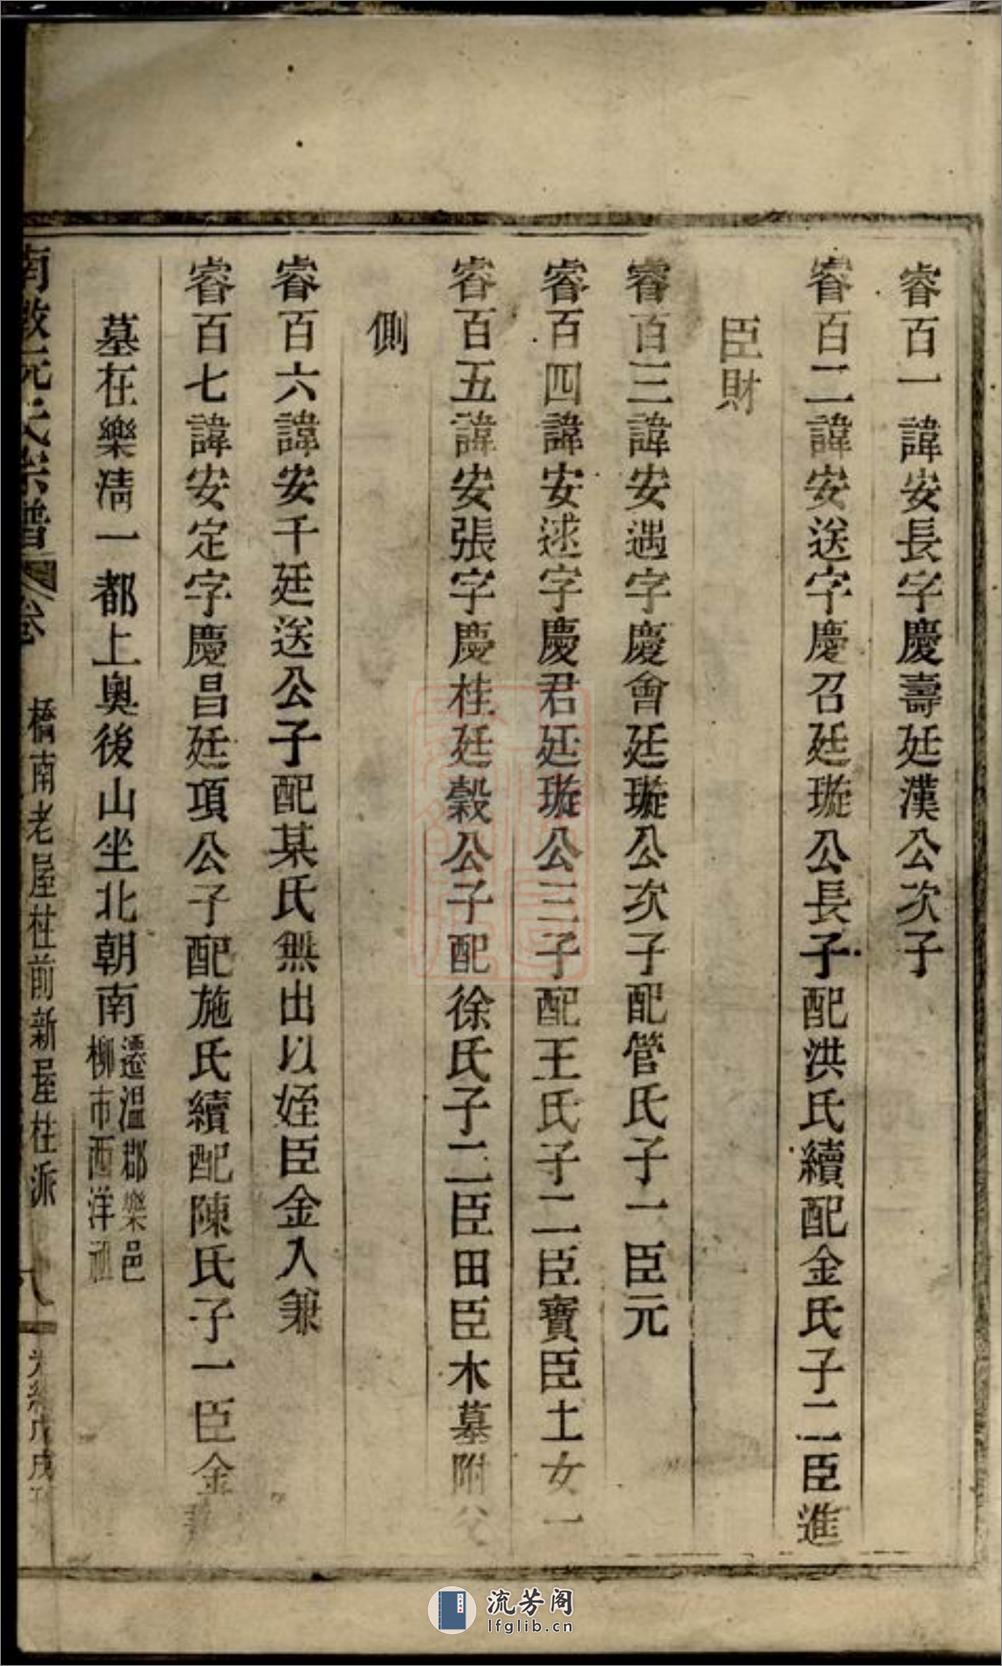 睿百一諱安長字慶壽廷漢公次子
睿百二諱安送字慶召廷璇公長子配洪氏續配金氏子二臣進
臣財
睿百三諱安遇字慶會廷璇公次子配管氏子一臣元
睿百四諱安逑字慶君廷璇公三子配王氏子二臣寶臣土女一
睿百五諱安張字慶桂廷穀公子配徐氏子二臣田臣木墓附父
側
睿百六諱安千廷送公子配某氏無出以姪臣金入兼
睿百七諱安定字慶昌廷項公子配施氏續配陳氏子一臣金
墓在樂清一都上奧後山坐北朝南遷温郡樂邑
柳市西洋
阮氏宗譜 卷 橋南老屋柱前新屋柱派 八 光緒戊戌
流芳阁
lfglib.cn